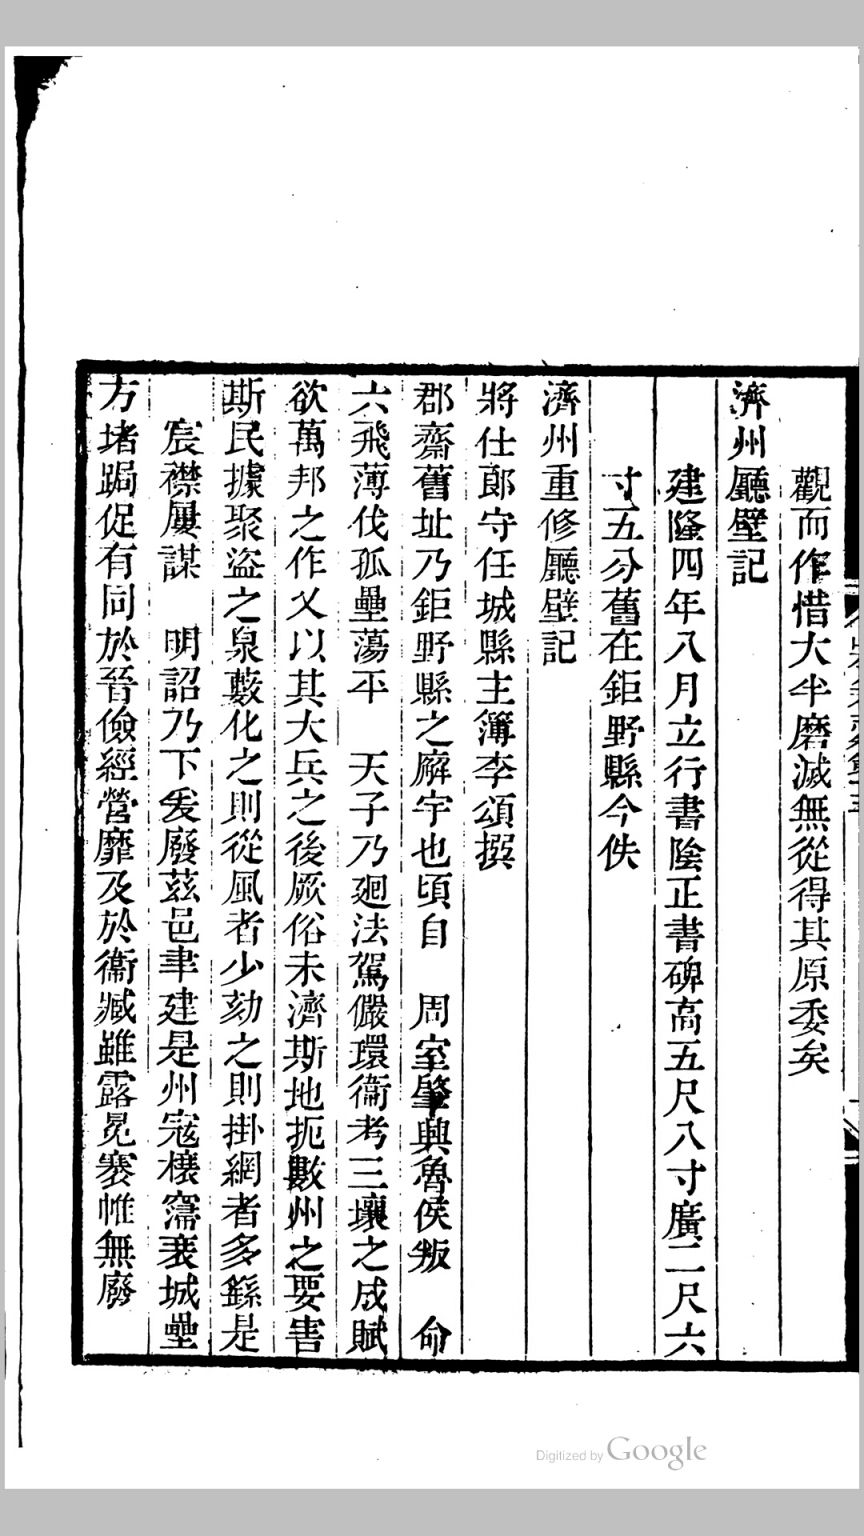 觀而作惜大半磨滅無從得其原委矣
濟州廳壁記
建隆四年八月立行書陰正書碑高五尺八寸廣二尺六
寸五分舊在鉅野縣今佚
濟州重修廳壁記
將仕郎守任城縣主簿李頌撰
郡齋舊址乃鉅野縣之廨宇也頃自　周室肇興魯侯叛　命
六飛薄伐孤壘蕩平　天子乃廻法駕儼環衞考三壤之成賦
欲萬邦之作乂以其大兵之後厥俗未濟斯地扼數州之要害
斯民據聚盜之泉藪化之則從風者少劾之則掛網者多繇是
宸襟屢謀　明詔乃下爰廢茲邑聿建是州寇欀窬裵城壘
方堵跼促有同於晉儉經營靡及於衞臧雖露冕褰帷無廢
Digitized by Google